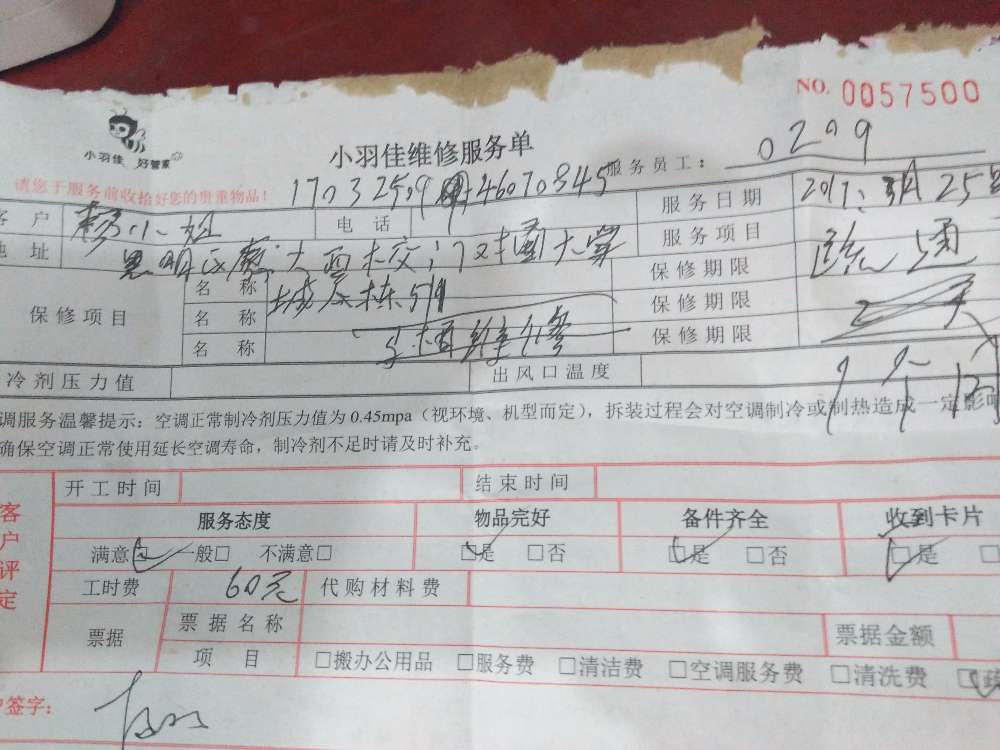 NO. 0057500
小羽佳 好管家
小羽佳维修服务单
服务员工： 0209
请您于服务前收拾好您的贵重物品！
客 户 小姐 电 话 服务日期 2017、3月25日
地 址 思明区 大 西 村 服务项目 疏通
保修项目
名 称 保修期限
名 称 保修期限
名 称 维修 保修期限
1个月
冷剂压力值 出风口温度
调服务温馨提示：空调正常制冷剂压力值为 0.45mpa（视环境、机型而定），拆装过程会对空调制冷或制热造成一定影响
确保空调正常使用延长空调寿命，制冷剂不足时请及时补充。
客户评定
开工时间 结束时间
服务态度 物品完好 备件齐全 收到卡片
满意□ 一般□ 不满意□ □是 □否 □是 □否 □是 □
工时费 60元 代购材料费
票据 票据名称 票据金额
项 目 □搬办公用品 □服务费 □清洁费 □空调服务费 □清洗费 □
户签字：